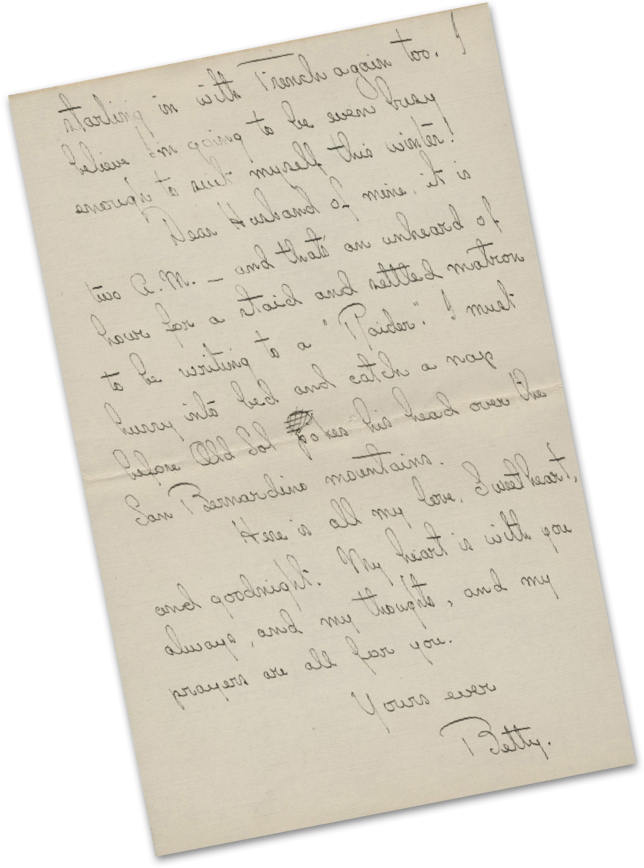 starting in with French again too. I
believe I'm going to be even busy
enough to suit myself this winter!
Dear Husband of mine, it is
two A.M. – and that's an unheard of
hour for a staid and settled matron
to be writing to a "Raider". I must
hurry into bed and catch a nap
before Old Sol pokes his head over the
San Bernardino mountains.
Here is all my love, Sweetheart,
and goodnight. My heart is with you
always, and my thoughts, and my
prayers are all for you.
Yours ever
Betty.